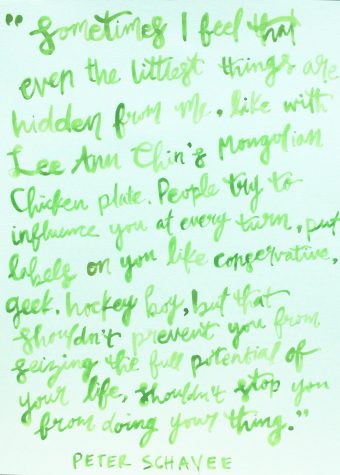 "Sometimes I feel that
even the littlest things are
hidden from me, like with
Lee Ann Chin's Mongolian
Chicken plate. People try to
influence you at every turn, put
labels on you like conservative,
geek, hockey boy, but that
shouldn't prevent you from
seizing the full potential of
your life, shouldn't stop you
from doing your thing."
PETER SCHAVEE